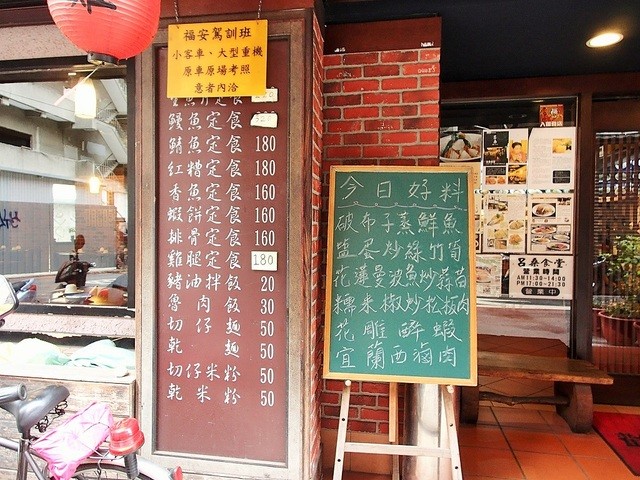 福安駕訓班
小客車、大型重機
原車原場考照
意者內洽
鰻魚定食
鯖魚定食 180
紅糟定食 180
香魚定食 160
蝦餅定食 160
排骨定食 160
雞腿定食 180
豬油拌飯 20
魯肉飯 30
切仔麵 50
乾麵 50
切仔米粉 50
乾米粉 50
今日好料
破布子蒸鮮魚
鹽蛋炒綠竹筍
花蓮曼波魚炒蒜苗
糯米椒炒松板肉
花雕醉蝦
宜蘭西滷肉
呂桑食堂
營業時間
AM11:30~14:00
PM17:00~21:30
營業中